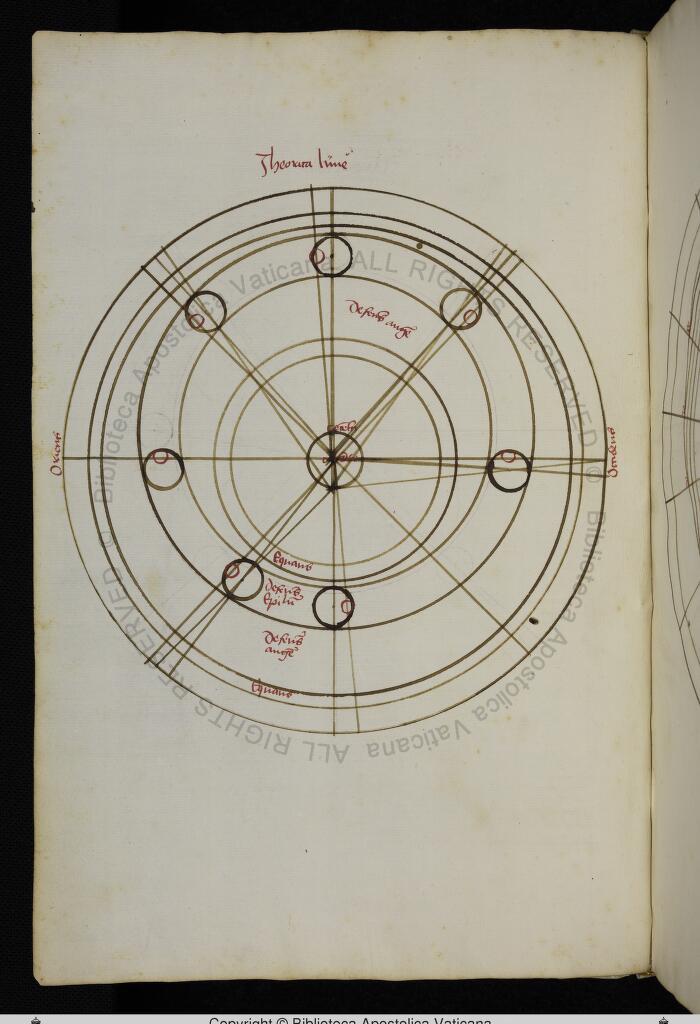 Theorica lune
deferens augem
Oriens
Equans
deferens
Epiciclum
deferens
augem
Equans
Biblioteca Apostolica Vaticana ALL RIGHTS RESERVED ©
Biblioteca Apostolica Vaticana ALL RIGHTS RESERVED ©
Copyright © Biblioteca Apostolica Vaticana